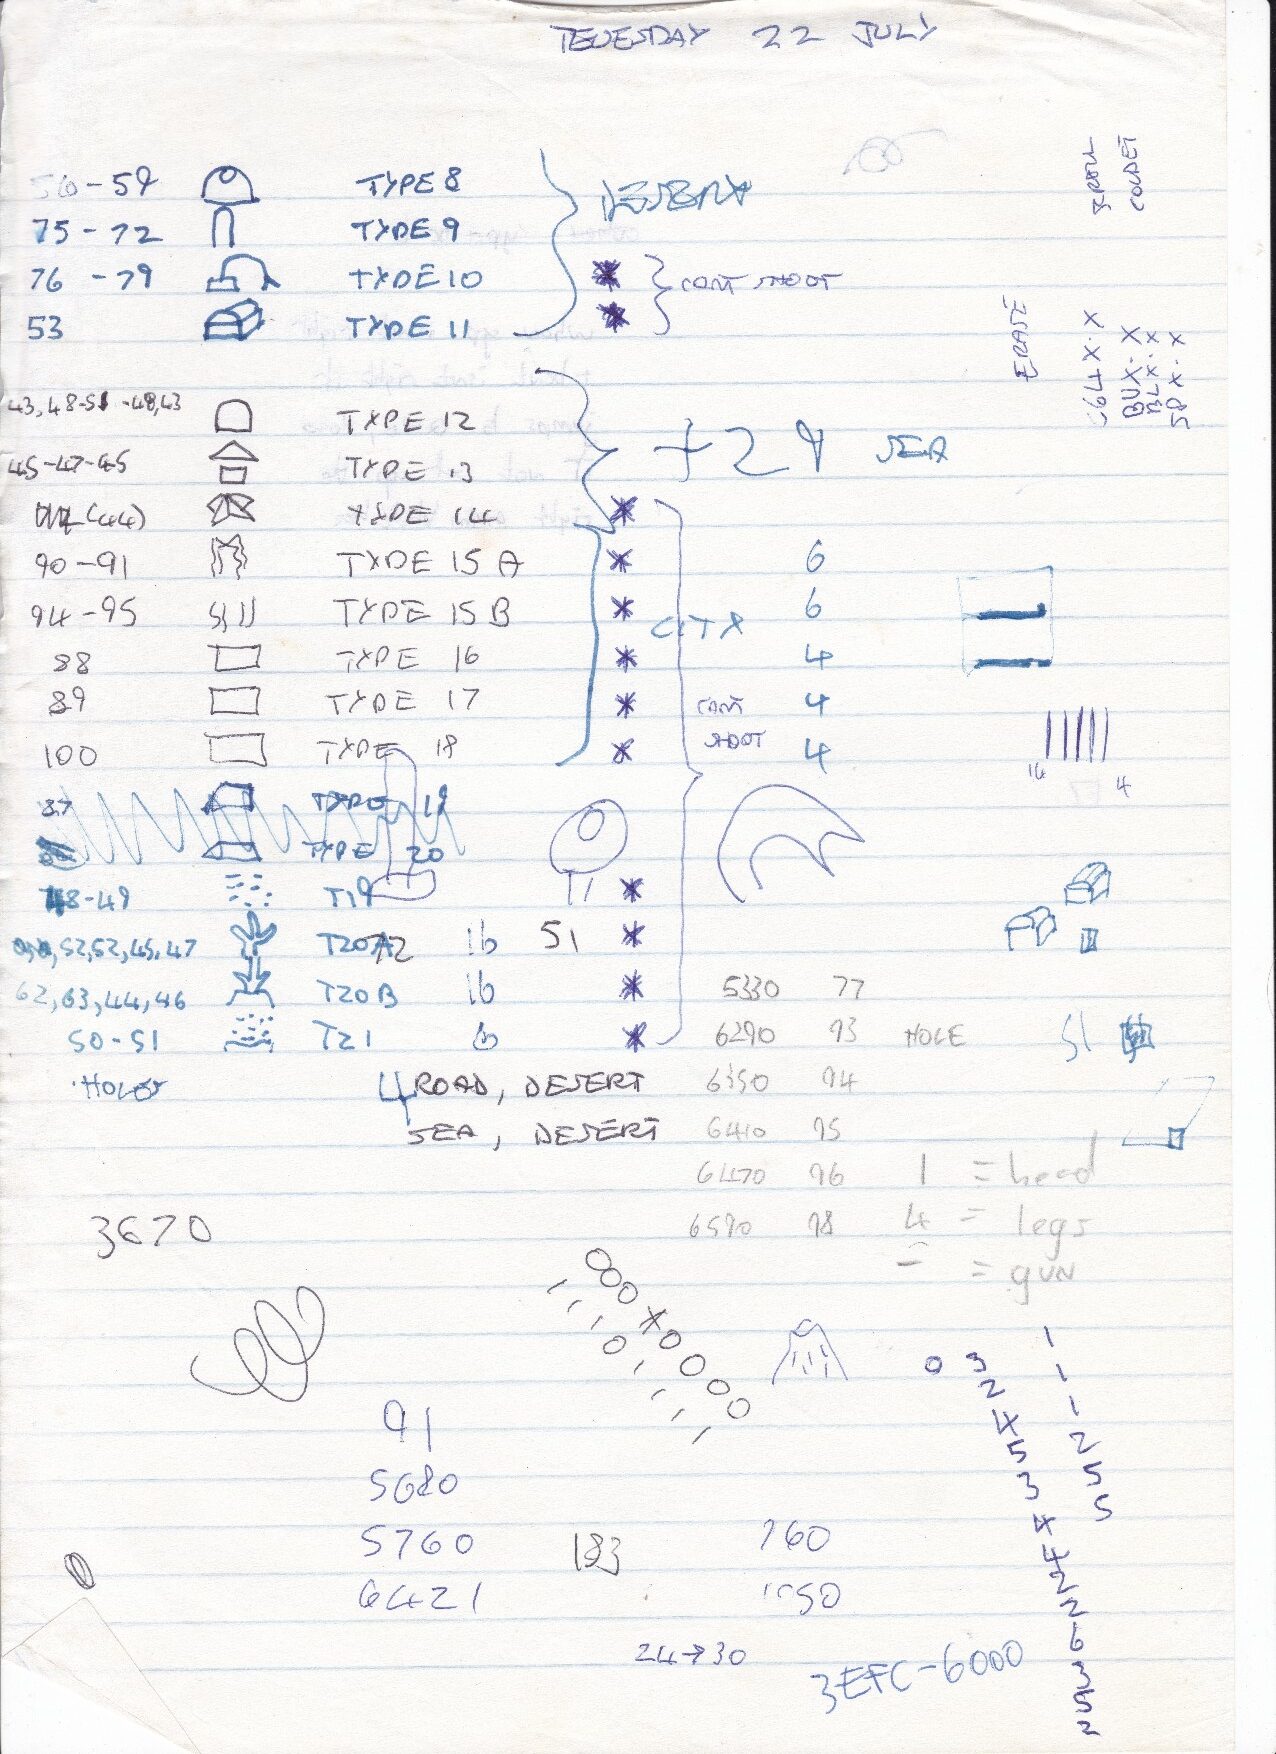 TEUESDAY 22 JULY
56-59 TYPE 8 DESERT
75-72 TYPE 9
76-79 TYPE 10 CANT SHOOT
53 TYPE 11
ERASE
C64X.X
BUX.X
BLX.X
SPX.X
COLDET
43,48-51-48,43 TYPE 12
45-47-45 TYPE 13 +29 SEA
(44) TYPE 14
90-91 TYPE 15 A 6
94-95 TYPE 15 B CITY 6
88 TYPE 16 4
89 TYPE 17 CANT 4
100 TYPE 18 SHOOT 4
16 4
87 TYPE 19
TYPE 20
48-49 T19
52,52,45,47 T20A 16 51
62,63,44,46 T20B 16 5330 77
50-51 T21 6 6290 93 HOLE 51
HOLES 4 ROAD, DESERT 6350 94
SEA, DESERT 6410 95
6470 96 1 = head
3670 6590 98 4 = legs
- = gun
91
5680
5760 183 760
6421
24→30
3EFC-6000
0 3
2
4
5
3
4
4
2
2
6
3
5
2
1
1
1
2
5
5